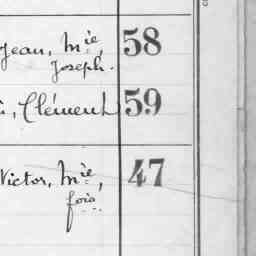 jean, Mie, 58
Joseph.
, Clément 59
Victor, Mie, 47
fois